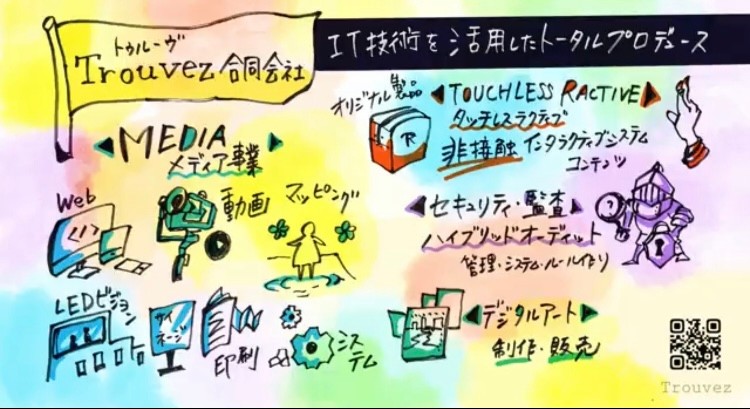 トゥルーヴ
Trouvez 合同会社
IT技術を活用したトータルプロデュース
MEDIA
メディア事業
Web
</>
動画
マッピング
LEDビジョン
サイネージ
印刷
システム
オリジナル製品
TOUCHLESS RACTIVE
タッチレスラクティブ
非接触 インタラクティブシステム
コンテンツ
R
セキュリティ・監査
ハイブリッドオーディット
管理・システム・ルール作り
?
デジタルアート
制作・販売
Trouvez